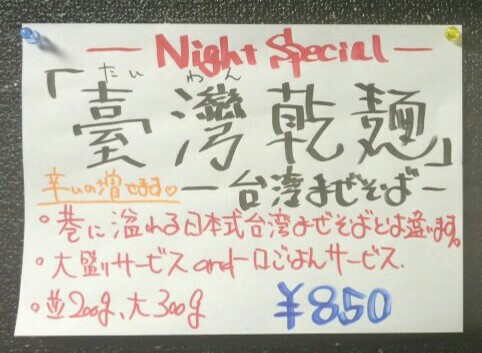 — Night Special —
たい わん
「臺灣乾麵」
辛いの増せます♡
— 台湾まぜそば —
○巷に溢れる日本式台湾まぜそばとは違います。
○大盛りサービスand一口ごはんサービス.
○並200g、大300g
¥850